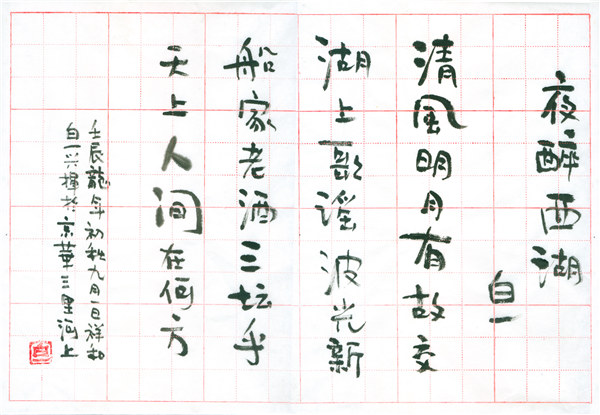 夜醉西湖
白一
清风明月有故交
湖上一歌谣波光新
船家老酒三坛乎
天上人间在何方
壬辰龙年初秋九月一日祥和
白一兴挥于京华三里河上